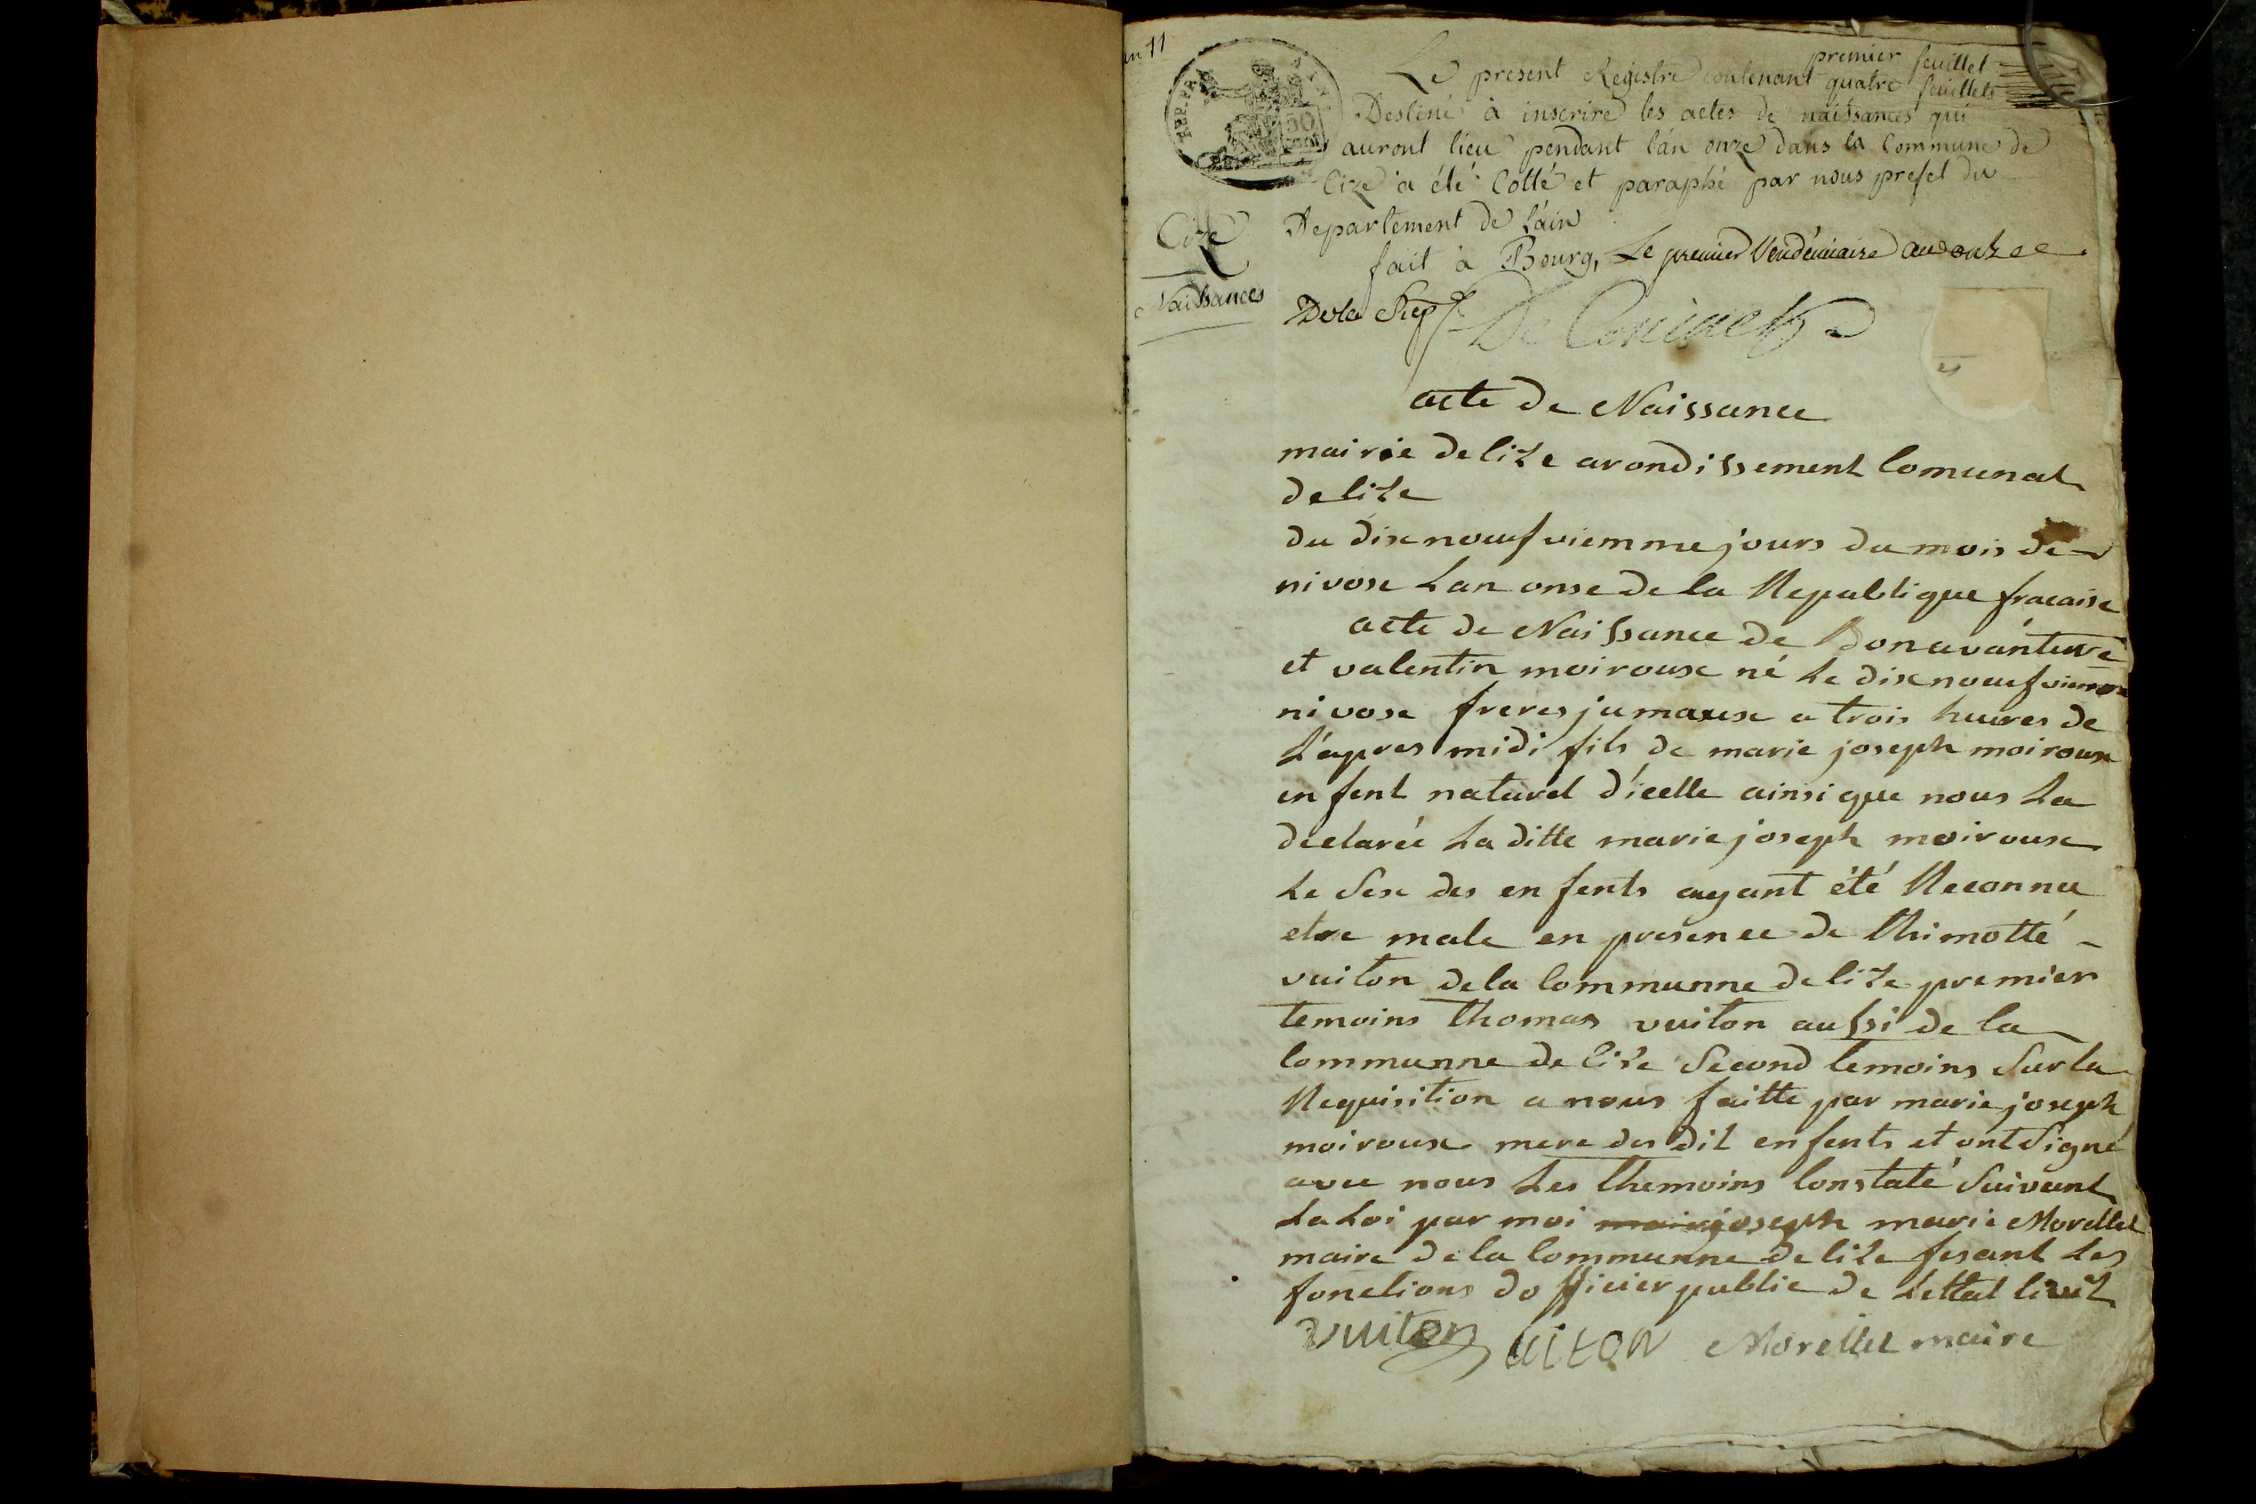 an 11
premier feuillet
Le present Registre contenant quatre feuillets
Destiné à inscrire les actes de naissances qui
auront lieu pendant l'an onze dans la Commune de
Cize a été Cotté et paraphé par nous prefet du
Departement de l'ain
fait à Bourg, Le premier Vendémiaire an onze
REP. FRA
50
Cize
Naissances
acte de Naissance
mairie de Cize arondissement Comunal
de Cize
du dix noeufviemme jours du mois de
nivose Lan onse de la Republique fracaise
acte de Naissance de Bonavánture
et valentin moiroux né Le dix noeufvieme
nivose freres jumaux a trois heures de
L'apres midi fils de marie joseph moiroux
enfent naturel d'icelle ainsi que nous La
declarée La ditte marie joseph moiroux
Le Sex des enfents ayant été Reconnu
etre male en presence de thimotté
vuiton de la Communne de Cize premier
temoins thomas vuiton aussi de la
Communne de Cize Second temoins Sur la
Requisition a nous faitte par marie joseph
moiroux mere des dit enfents et ont Signé
avec nous Les themoins Constaté Suivant
La Loi par moi joseph marie Morellet
maire de la Communne de Cize fesant Les
fonctions dofficier public de Lettat Civil
vuiton uiton Morellet maire